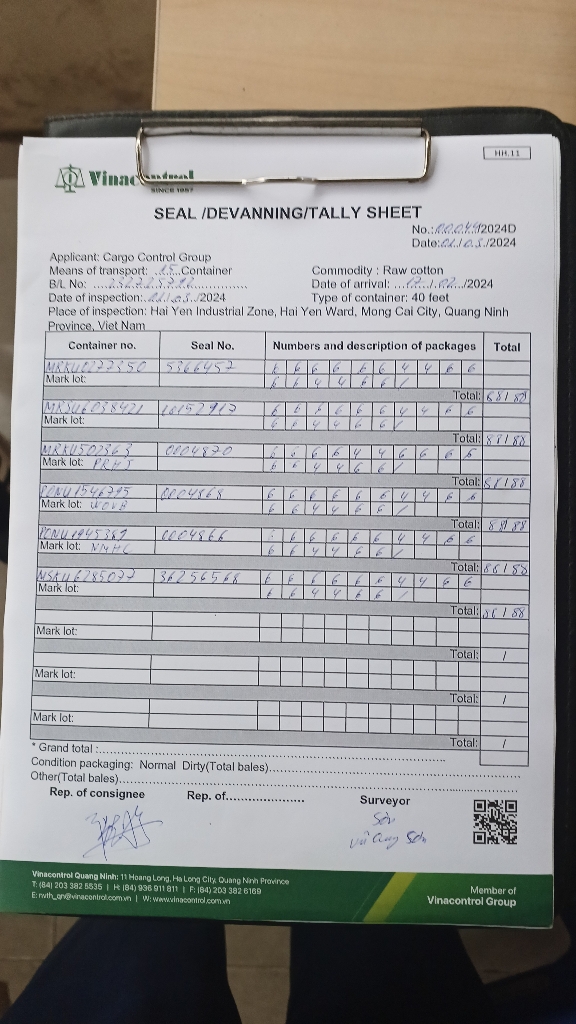 HH.11
Vinacontrol
SINCE 1957
SEAL /DEVANNING/TALLY SHEET
No.: /2024D
Date: 01/03/2024
Applicant: Cargo Control Group
Means of transport: 15 Container
Commodity : Raw cotton
B/L No:
Date of arrival: /02/2024
Date of inspection: 01/03/2024
Type of container: 40 feet
Place of inspection: Hai Yen Industrial Zone, Hai Yen Ward, Mong Cai City, Quang Ninh
Province, Viet Nam
Container no. Seal No. Numbers and description of packages Total
MRKU0277350 5366457 6 6 6 6 6 6 4 4 6 6
Mark lot: 6 6 4 4 6 6 /
Total: 88/88
MRSU6038421 10152917 6 6 6 6 6 6 4 4 6 6
Mark lot: 6 6 4 4 6 6 /
Total: 88/88
0004870 6 6 6 6 4 4 6 6 6 6
Mark lot: 6 6 4 4 6 6 /
Total: 88/88
PONU1546795 0004868 6 6 6 6 6 6 4 4 6 6
Mark lot: 6 6 4 4 6 6 /
Total: 88/88
PONU1945381 0004866 6 6 6 6 6 6 4 4 6 6
Mark lot: 6 6 4 4 6 6 /
Total: 88/88
MSKU6285077 36256568 6 6 6 6 6 6 4 4 6 6
Mark lot: 6 6 4 4 6 6 /
Total: 88/88
Mark lot:
Total: /
Mark lot:
Total: /
Mark lot:
Total: /
* Grand total :
Condition packaging: Normal Dirty(Total bales)
Other(Total bales)
Rep. of consignee Rep. of Surveyor
Sơn
Sơn
Vinacontrol Quang Ninh: 11 Hoang Long, Ha Long City, Quang Ninh Province
T: (84) 203 382 5535 | H: (84) 936 911 811 | F: (84) 203 382 6169
E: nvth_qn@vinacontrol.com.vn | W: www.vinacontrol.com.vn
Member of
Vinacontrol Group